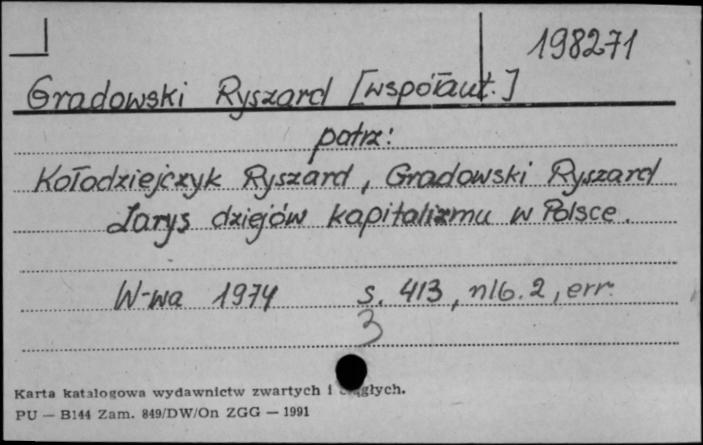 198271
Gradowski Ryszard [współaut.]
patrz:
Kołodziejczyk Ryszard, Gradowski Ryszard
Zarys dziejów kapitalizmu w Polsce.
W-wa 1974 s. 413, nlb. 2, err.
3
Karta katalogowa wydawnictw zwartych i ciągłych.
PU — B144 Zam. 849/DW/On ZGG — 1991